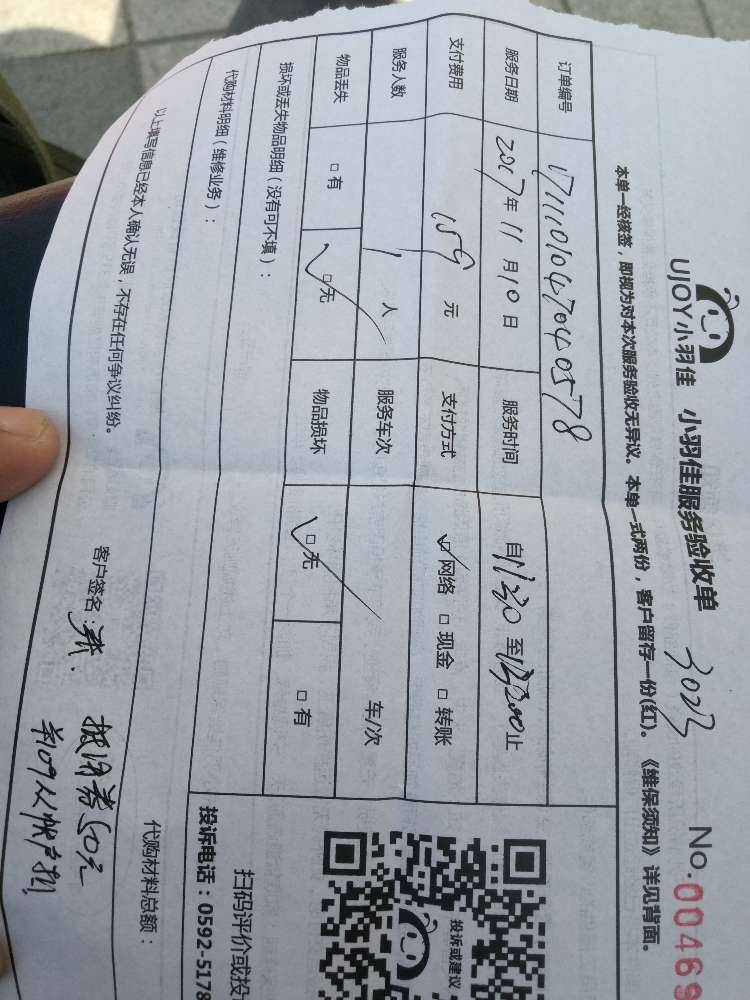 UJOY小羽佳 小羽佳服务验收单 No.00469
本单一经核签，即视为对本次服务验收无异议。本单一式两份，客户留存一份(红)。《维保须知》详见背面。
订单编号 1711101047040578
服务日期 2017年11月10日 服务时间 自11:30 至 止
支付费用 159元 支付方式 ☑网络 □现金 □转账
服务人数 1人 服务车次 车/次
物品丢失 □有 □无 物品损坏 □无 □有
损坏或丢失物品明细（没有可不填）：
代购材料明细（维修业务）：
代购材料总额：
以上填写信息已经本人确认无误，不存在任何争议纠纷。
客户签名：
抵用券50元
投诉或建议
扫码评价或投
投诉电话：0592-5178